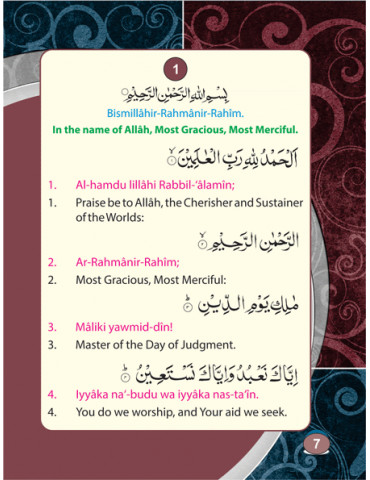 1
بِسْمِ اللهِ الرَّحْمٰنِ الرَّحِيْمِ
Bismillâhir-Rahmânir-Rahîm.
In the name of Allâh, Most Gracious, Most Merciful.
اَلْحَمْدُ لِلّٰهِ رَبِّ الْعٰلَمِيْنَ
1. Al-hamdu lillâhi Rabbil-‘âlamîn;
1. Praise be to Allâh, the Cherisher and Sustainer
of the Worlds:
الرَّحْمٰنِ الرَّحِيْمِ
2. Ar-Rahmânir-Rahîm;
2. Most Gracious, Most Merciful:
مٰلِكِ يَوْمِ الدِّيْنِ
3. Mâliki yawmid-dîn!
3. Master of the Day of Judgment.
اِيَّاكَ نَعْبُدُ وَاِيَّاكَ نَسْتَعِيْنُ
4. Iyyâka na‘-budu wa iyyâka nas-ta‘în.
4. You do we worship, and Your aid we seek.
7